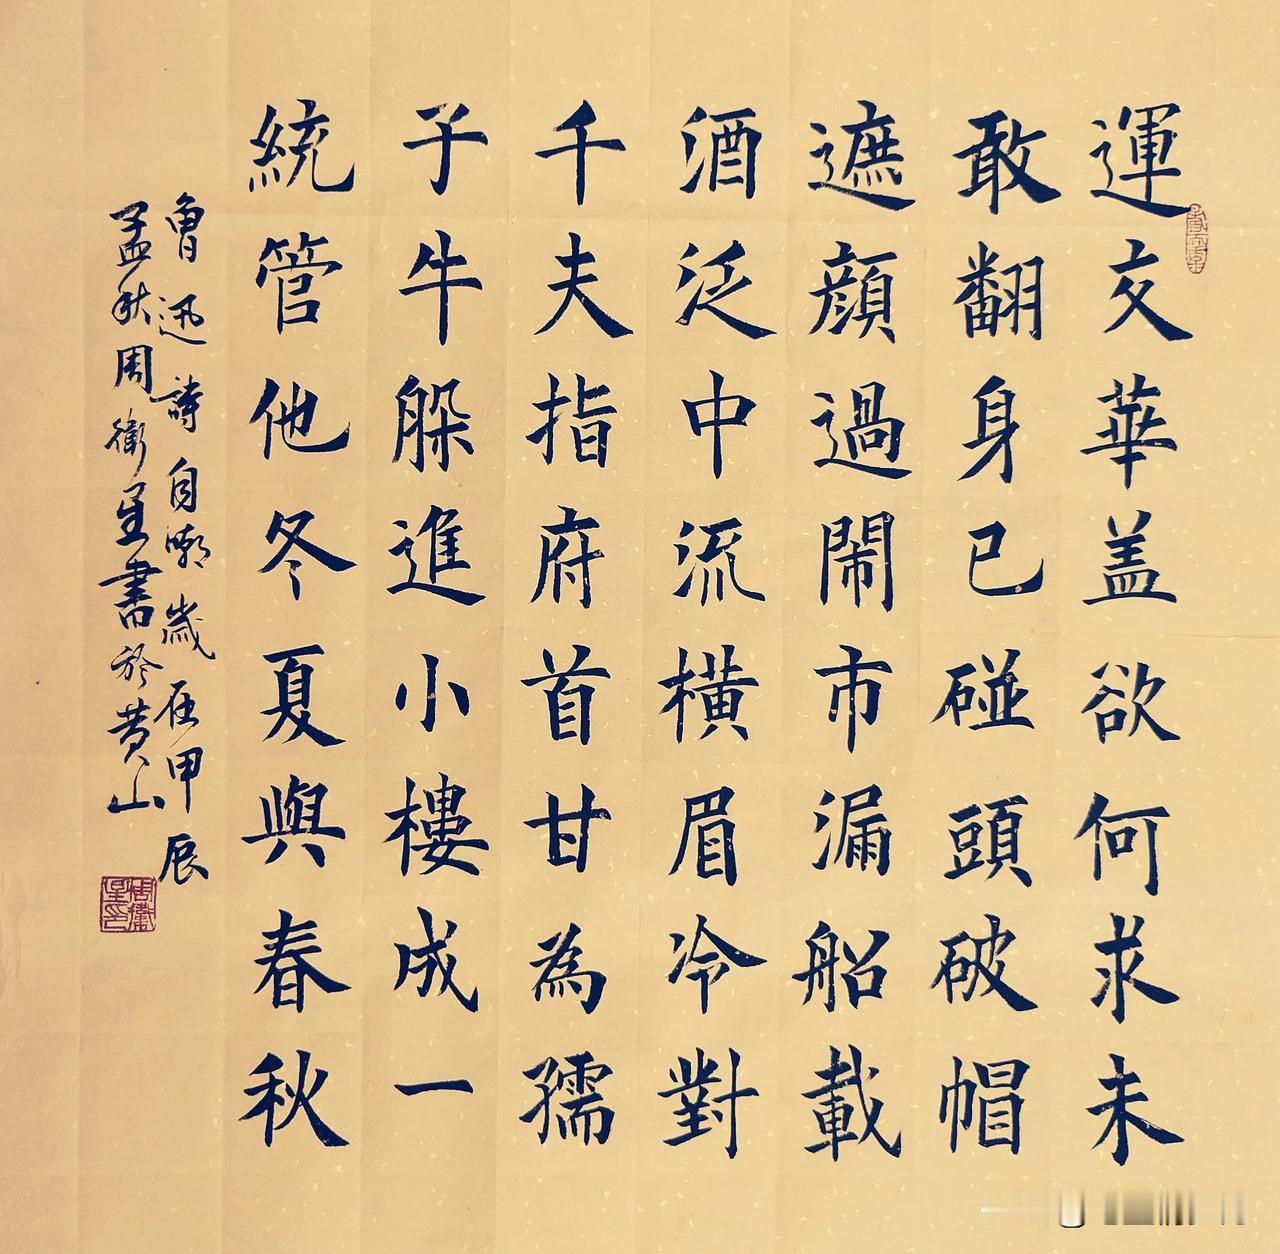 運交華盖欲何求未
敢翻身已碰頭破帽
遮顔過鬧市漏船載
酒泛中流横眉冷對
千夫指府首甘為孺
子牛躲進小樓成一
統管他冬夏與春秋
魯迅詩自嘲歲在甲辰
孟秋周衛星書於黄山
周衛星印